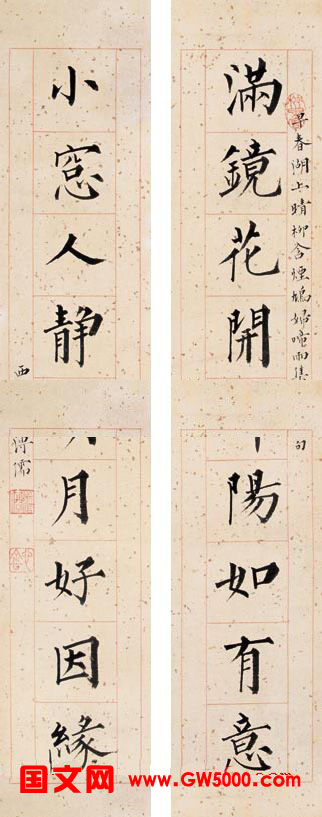 早春湖上晴柳含煙鳩婦啼雨集
句
滿鏡花開
陽如有意
小窓人静
月好因緣
西
溥儒
国文网 www.GW5000.com